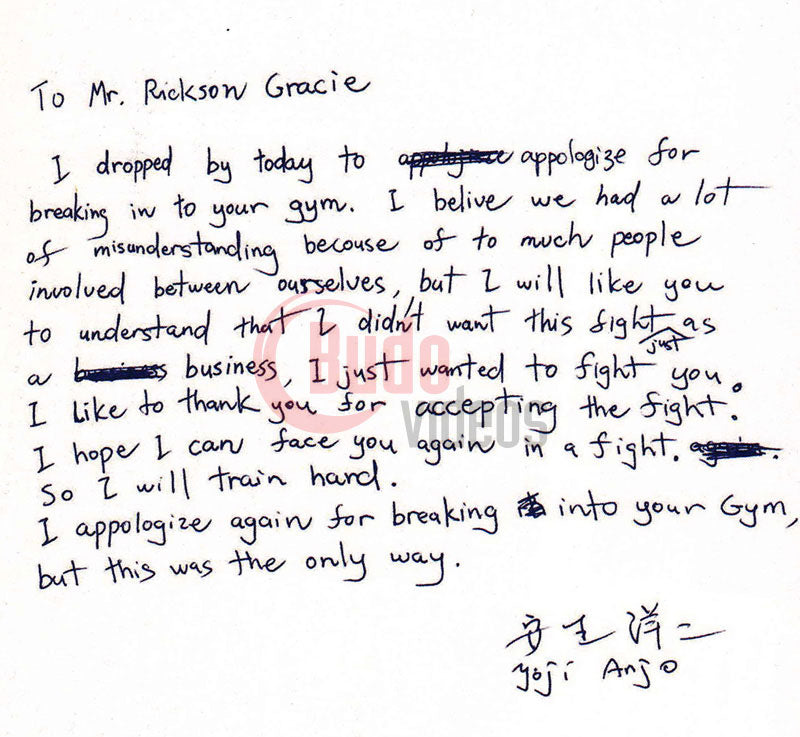 To Mr. Rickson Gracie
I dropped by today to appologize for
breaking in to your gym. I belive we had a lot
of misunderstanding becouse of to much people
involved between ourselves, but I will like you
to understand that I didn't want this fight just as
a business, I just wanted to fight you.
I like to thank you for accepting the fight.
I hope I can face you again in a fight.
So I will train hard.
I appologize again for breaking into your Gym,
but this was the only way.
安生洋二
Yoji Anjo
Budo
videos